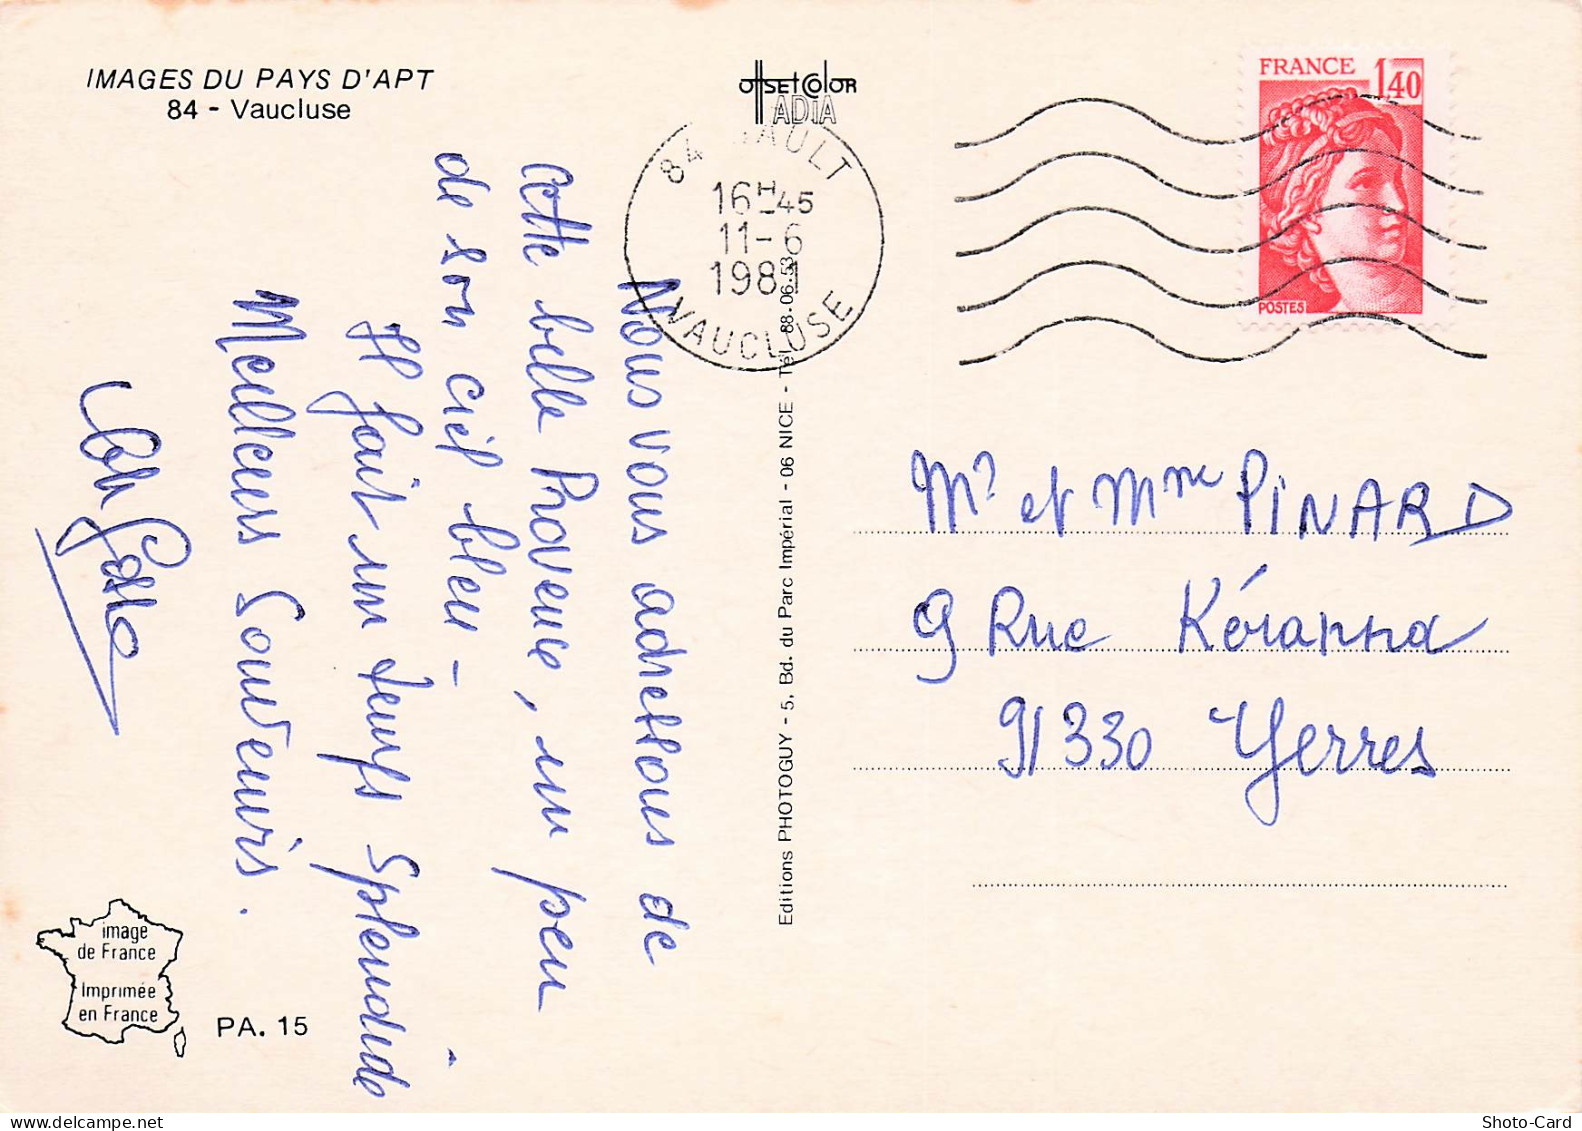 IMAGES DU PAYS D'APT
84 - Vaucluse
OffsetColor
ADIA
84 SAULT
16H45
11-6
1981
VAUCLUSE
FRANCE 1,40
POSTES
Nous vous adressons de
cette belle Provence, un peu
de son ciel bleu -
Il fait un temps splendide -
Meilleurs Souvenirs.
Mr et Mme PINARD
9 Rue Kéranna
91330 Yerres
Editions PHOTOGUY - 5, Bd. du Parc Impérial - 06 NICE - Tél. 88.06.53
image
de France
Imprimée
en France
PA. 15
Shoto-Card